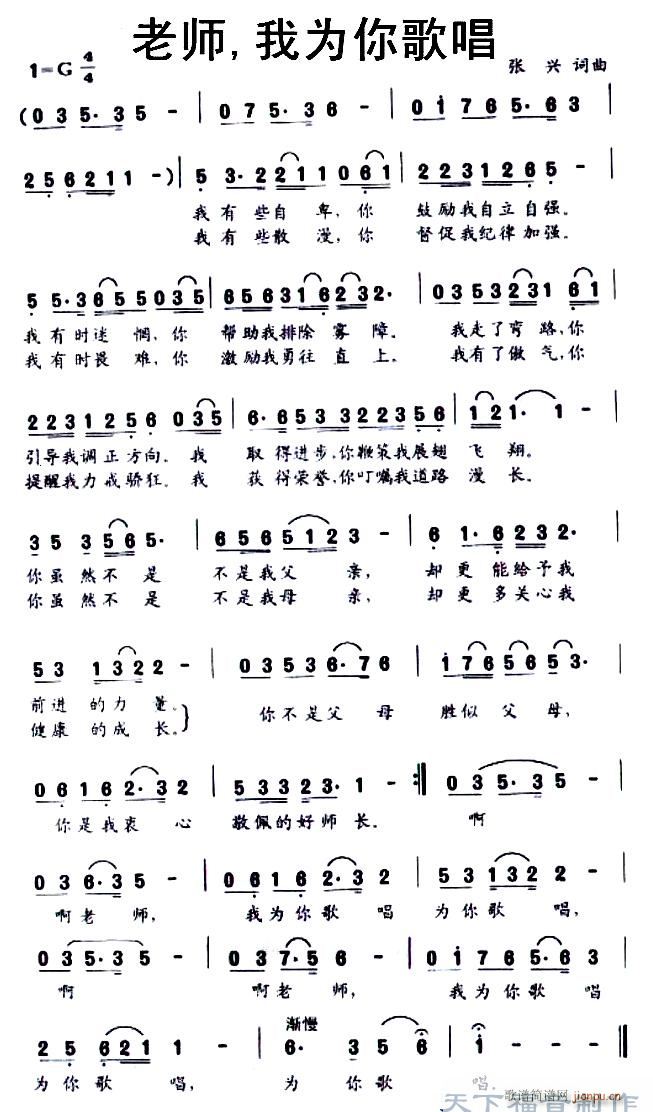 老师,我为你歌唱
1=G 4/4
张 兴 词曲
(0 3 5· 3 5 - | 0 7 5· 3 6 - | 0 i 7 6 5· 6 3
2 5 6 2 1 1 -) 5 3· 2 2 1 1 0 6 1 | 2 2 3 1 2 6 5 - |
我有些自卑,你 鼓励我自立自强。
我有些散漫,你 督促我纪律加强。
5 5· 3 6 5 5 0 3 5 | 6 5 6 3 1 6 2 3 2· | 0 3 5 3 2 3 1 6 1 |
我有时迷惘,你 帮助我排除雾障。 我走了弯路,你
我有时畏难,你 激励我勇往直上。 我有了傲气,你
2 2 3 1 2 5 6 0 3 5 | 6· 6 5 3 3 2 2 3 5 6 | 1 2 1· 1 - |
引导我调正方向。我 取得进步,你鞭策我展翅 飞翔。
提醒我力戒骄狂。我 获得荣誉,你叮嘱我道路 漫长。
3 5 3 5 6 5· - | 6 5 6 5 1 2 3 - | 6 1· 6 2 3 2· |
你虽然不是 不是我父亲, 却更能给予我
你虽然不是 不是我母亲, 却更多关心我
5 3 1 3 2 2 - | 0 3 5 3 6· 7 6 | i 7 6 5 6 5 3· |
前进的力量。 你不是父母 胜似父母,
健康的成长。}
0 6 1 6 2· 3 2 | 5 3 3 2 3· 1 - :‖ 0 3 5· 3 5 - |
你是我衷心 敬佩的好师长。 啊
0 3 6· 3 5 - | 0 6 1 6 2· 3 2 | 5 3 1 3 2 2 - |
啊老师, 我为你歌唱 为你歌唱,
0 3 5· 3 5 - | 0 3 7· 5 6 - | 0 i 7 6 5· 6 3 |
啊 啊老师, 我为你歌唱
渐慢
2 5 6 2 1 1 - | 6· 3 5 6 | i - - - ‖
为你歌唱, 为你歌唱。
歌谱简谱网 jianpu.cn
天下福音制作